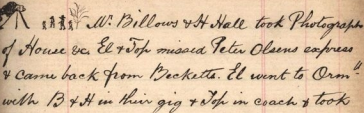 Mr Billows & H Hall took Photographs
of House &c El & Top missed Peter Olsens express
& came back from Becketts. El went to Orm"
with B & H in their gig & Top in coach & took